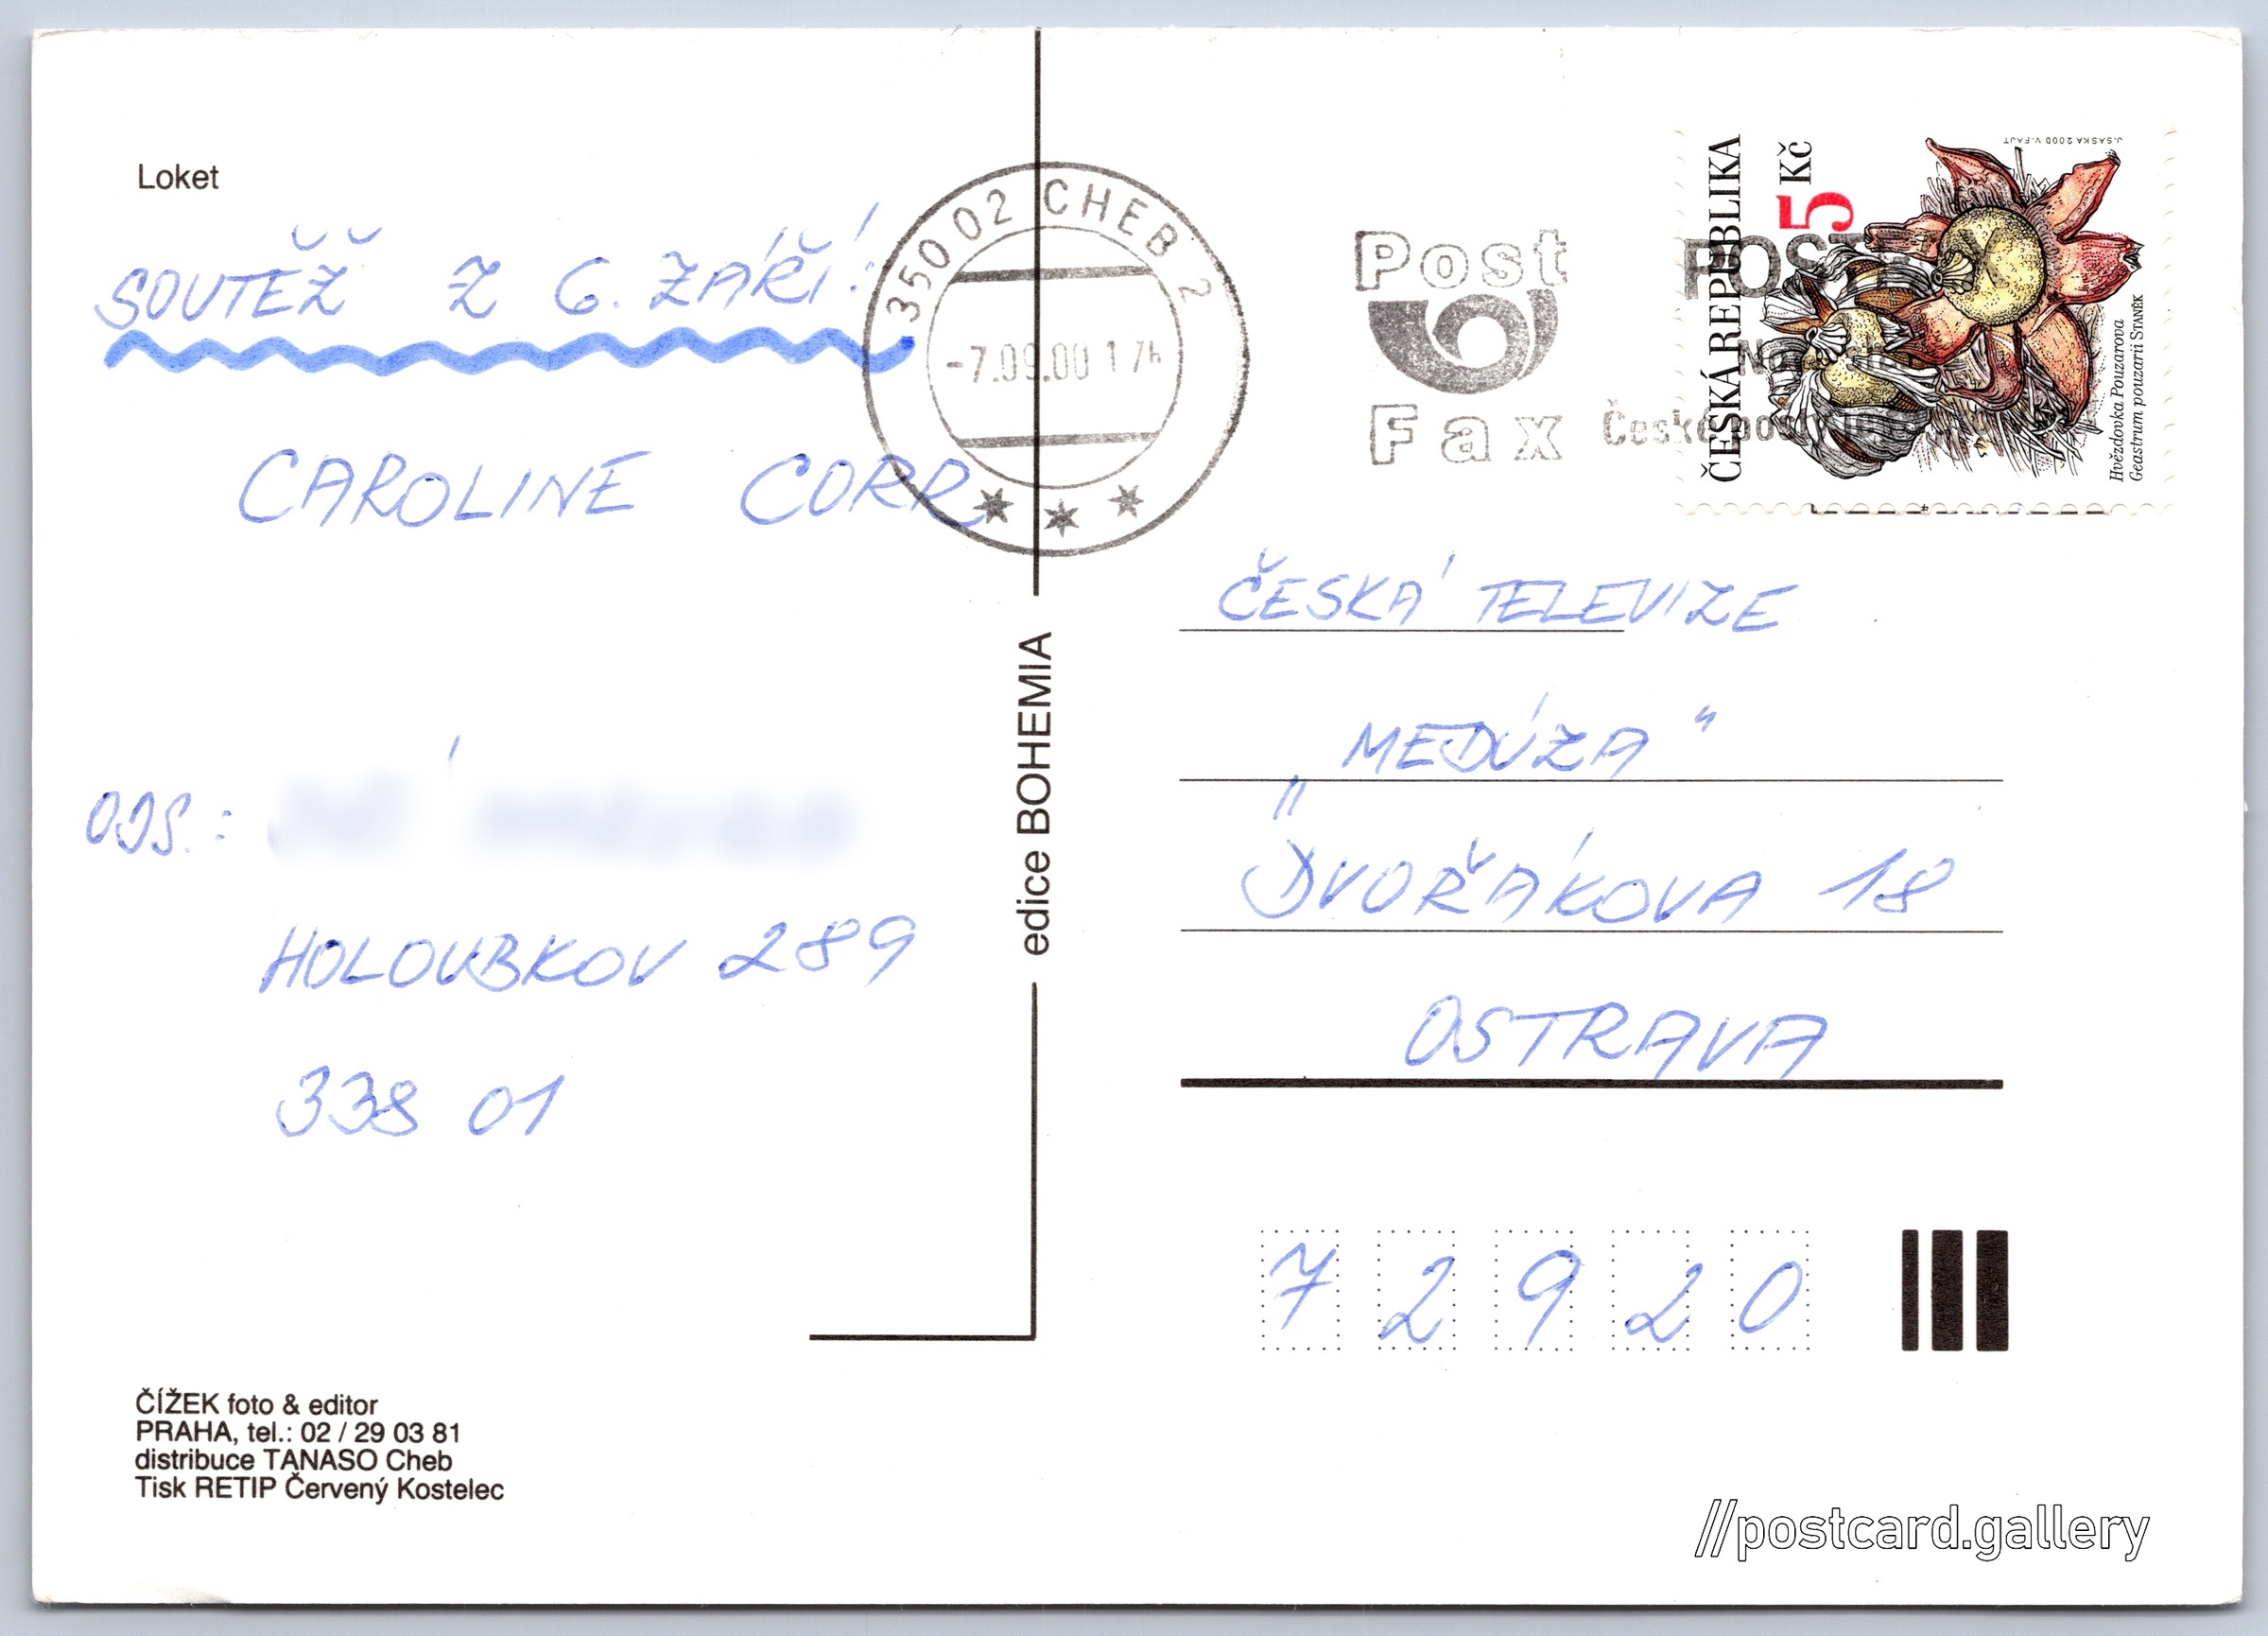 Loket
SOUTĚŽ Z 6. ZÁŘÍ:
CAROLINE CORR
ODS.:
HOLOUBKOV 289
338 01
ČÍŽEK foto & editor
PRAHA, tel.: 02 / 29 03 81
distribuce TANASO Cheb
Tisk RETIP Červený Kostelec
edice BOHEMIA
350 02 CHEB 2
-7.09.00 17h
Post
Fax
POST
Česká pošta
ČESKÁ REPUBLIKA
5 Kč
Hvězdovka Pouzarova
Geastrum pouzarii STANĚK
J. SASKA 2000 V. FAJT
ČESKÁ TELEVIZE
„MEDÚZA“
DVOŘÁKOVA 18
OSTRAVA
72920
//postcard.gallery